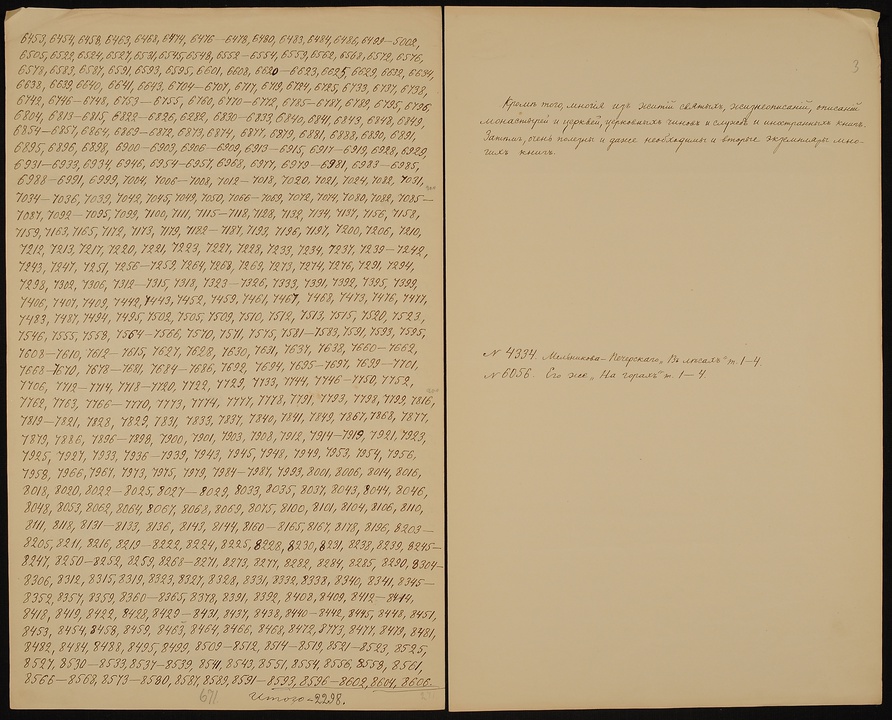 6453, 6454, 6458, 6463, 6468, 6474, 6476—6478, 6480, 6483, 6484, 6486,
6505, 6522, 6524, 6527, 6531, 6545, 6548, 6552—6554, 6559, 6562, 6568, 6572, 6576,
6578, 6583, 6587, 6591, 6593, 6595, 6601, 6608, 6620—6623, 6625, 6629, 6632, 6634,
6638, 6639, 6640, 6641, 6643, 6704—6707, 6717, 6719, 6724, 6725, 6733, 6737, 6738,
6742, 6746—6748, 6753—6755, 6760, 6770—6772, 6785—6787, 6789, 6795, 6796,
6804, 6813—6815, 6822—6826, 6282, 6830—6833, 6840, 6841, 6843, 6848, 6849,
6854—6857, 6864, 6869—6872, 6873, 6874, 6877, 6879, 6881, 6888, 6890, 6891,
6895, 6896, 6898, 6900—6903, 6906—6909, 6913—6915, 6917—6919, 6928, 6929,
6931—6933, 6934, 6946, 6954—6957, 6968, 6977, 6979—6981, 6983—6985,
6988—6991, 6999, 7004, 7006—7008, 7012—7018, 7020, 7021, 7024, 7022, 7031,
7034—7036, 7039, 7042, 7045, 7049, 7050, 7066—7069, 7072, 7074, 7080, 7082, 7085—
7087, 7092—7095, 7099, 7100, 7111, 7115—7118, 7128, 7132, 7134, 7137, 7156, 7158,
7159, 7163, 7165, 7172, 7173, 7179, 7182—7187, 7193, 7196, 7197, 7200, 7206, 7210,
7212, 7213, 7217, 7220, 7221, 7223, 7227, 7228, 7233, 7234, 7237, 7239—7242,
7243, 7247, 7251, 7256—7259, 7264, 7268, 7269, 7273, 7274, 7276, 7291, 7294,
7298, 7302, 7306, 7312—7315, 7318, 7323—7326, 7333, 7391, 7392, 7395, 7399,
7406, 7407, 7409, 7442, 7443, 7452, 7459, 7461, 7467, 7468, 7473, 7476, 7477,
7483, 7487, 7494, 7495, 7502, 7505, 7509, 7510, 7512, 7513, 7515, 7520, 7523,
7546, 7555, 7558, 7564—7566, 7570, 7571, 7575, 7581—7583, 7591, 7593, 7595,
7608—7610, 7612—7615, 7627, 7628, 7630, 7631, 7637, 7638, 7660—7662,
7668—7670, 7678—7681, 7684—7686, 7692, 7694, 7695—7697, 7699—7701,
7706, 7712—7714, 7718—7720, 7722, 7729, 7733, 7744, 7746—7750, 7752,
7762, 7763, 7766—7770, 7773, 7774, 7777, 7778, 7791, 7793, 7798, 7799, 7816,
7819—7821, 7828, 7829, 7831, 7833, 7837, 7840, 7841, 7849, 7867, 7868, 7877,
7879, 7886, 7896—7898, 7900, 7901, 7903, 7908, 7912, 7914—7919, 7921, 7923,
7925, 7927, 7933, 7936—7939, 7943, 7945, 7948, 7949, 7953, 7954, 7956,
7958, 7966, 7967, 7973, 7975, 7979, 7984—7987, 7993, 8001, 8006, 8014, 8016,
8018, 8020, 8022—8025, 8027—8029, 8033, 8035, 8037, 8043, 8044, 8046,
8048, 8053, 8062, 8064, 8067, 8068, 8069, 8075, 8100, 8101, 8104, 8106, 8110,
8111, 8118, 8131—8133, 8136, 8143, 8144, 8160—8165, 8167, 8178, 8196, 8203—
8205, 8211, 8216, 8219—8222, 8224, 8225, 8228, 8230, 8231, 8238, 8239, 8245—
8247, 8250—8252, 8259, 8268—8271, 8273, 8277, 8282, 8284, 8285, 8290, 8304—
8306, 8312, 8315, 8319, 8323, 8327, 8328, 8331, 8332, 8338, 8340, 8341, 8345—
8352, 8357, 8359, 8360—8365, 8378, 8391, 8392, 8408, 8409, 8412—8414,
8418, 8419, 8422, 8428, 8429—8431, 8437, 8438, 8440—8442, 8445, 8448, 8451,
8453, 8454, 8458, 8459, 8463, 8464, 8466, 8468, 8472, 8473, 8477, 8479, 8481,
8482, 8484, 8488, 8495, 8499, 8509—8512, 8514—8519, 8521—8523, 8525,
8527, 8530—8533, 8537—8539, 8541, 8543, 8551, 8554, 8556, 8558, 8561,
8566—8568, 8573—8580, 8587, 8589, 8591—8593, 8596—8602, 8604, 8606.
671 Итого—2298.
3
Кромѣ того, многія изъ житій святыхъ, жизнеописаній, описаній
монастырей и церквей, церковныхъ чиновъ и службъ и иностранныхъ книгъ.
Затѣмъ, очень полезны и даже необходимы и вторые экземпляры мно-
гихъ книгъ.
№ 4334. Мельникова-Печерскаго „Въ лѣсахъ" т. 1—4.
№ 6056. Его же „На горахъ" т. 1—4.